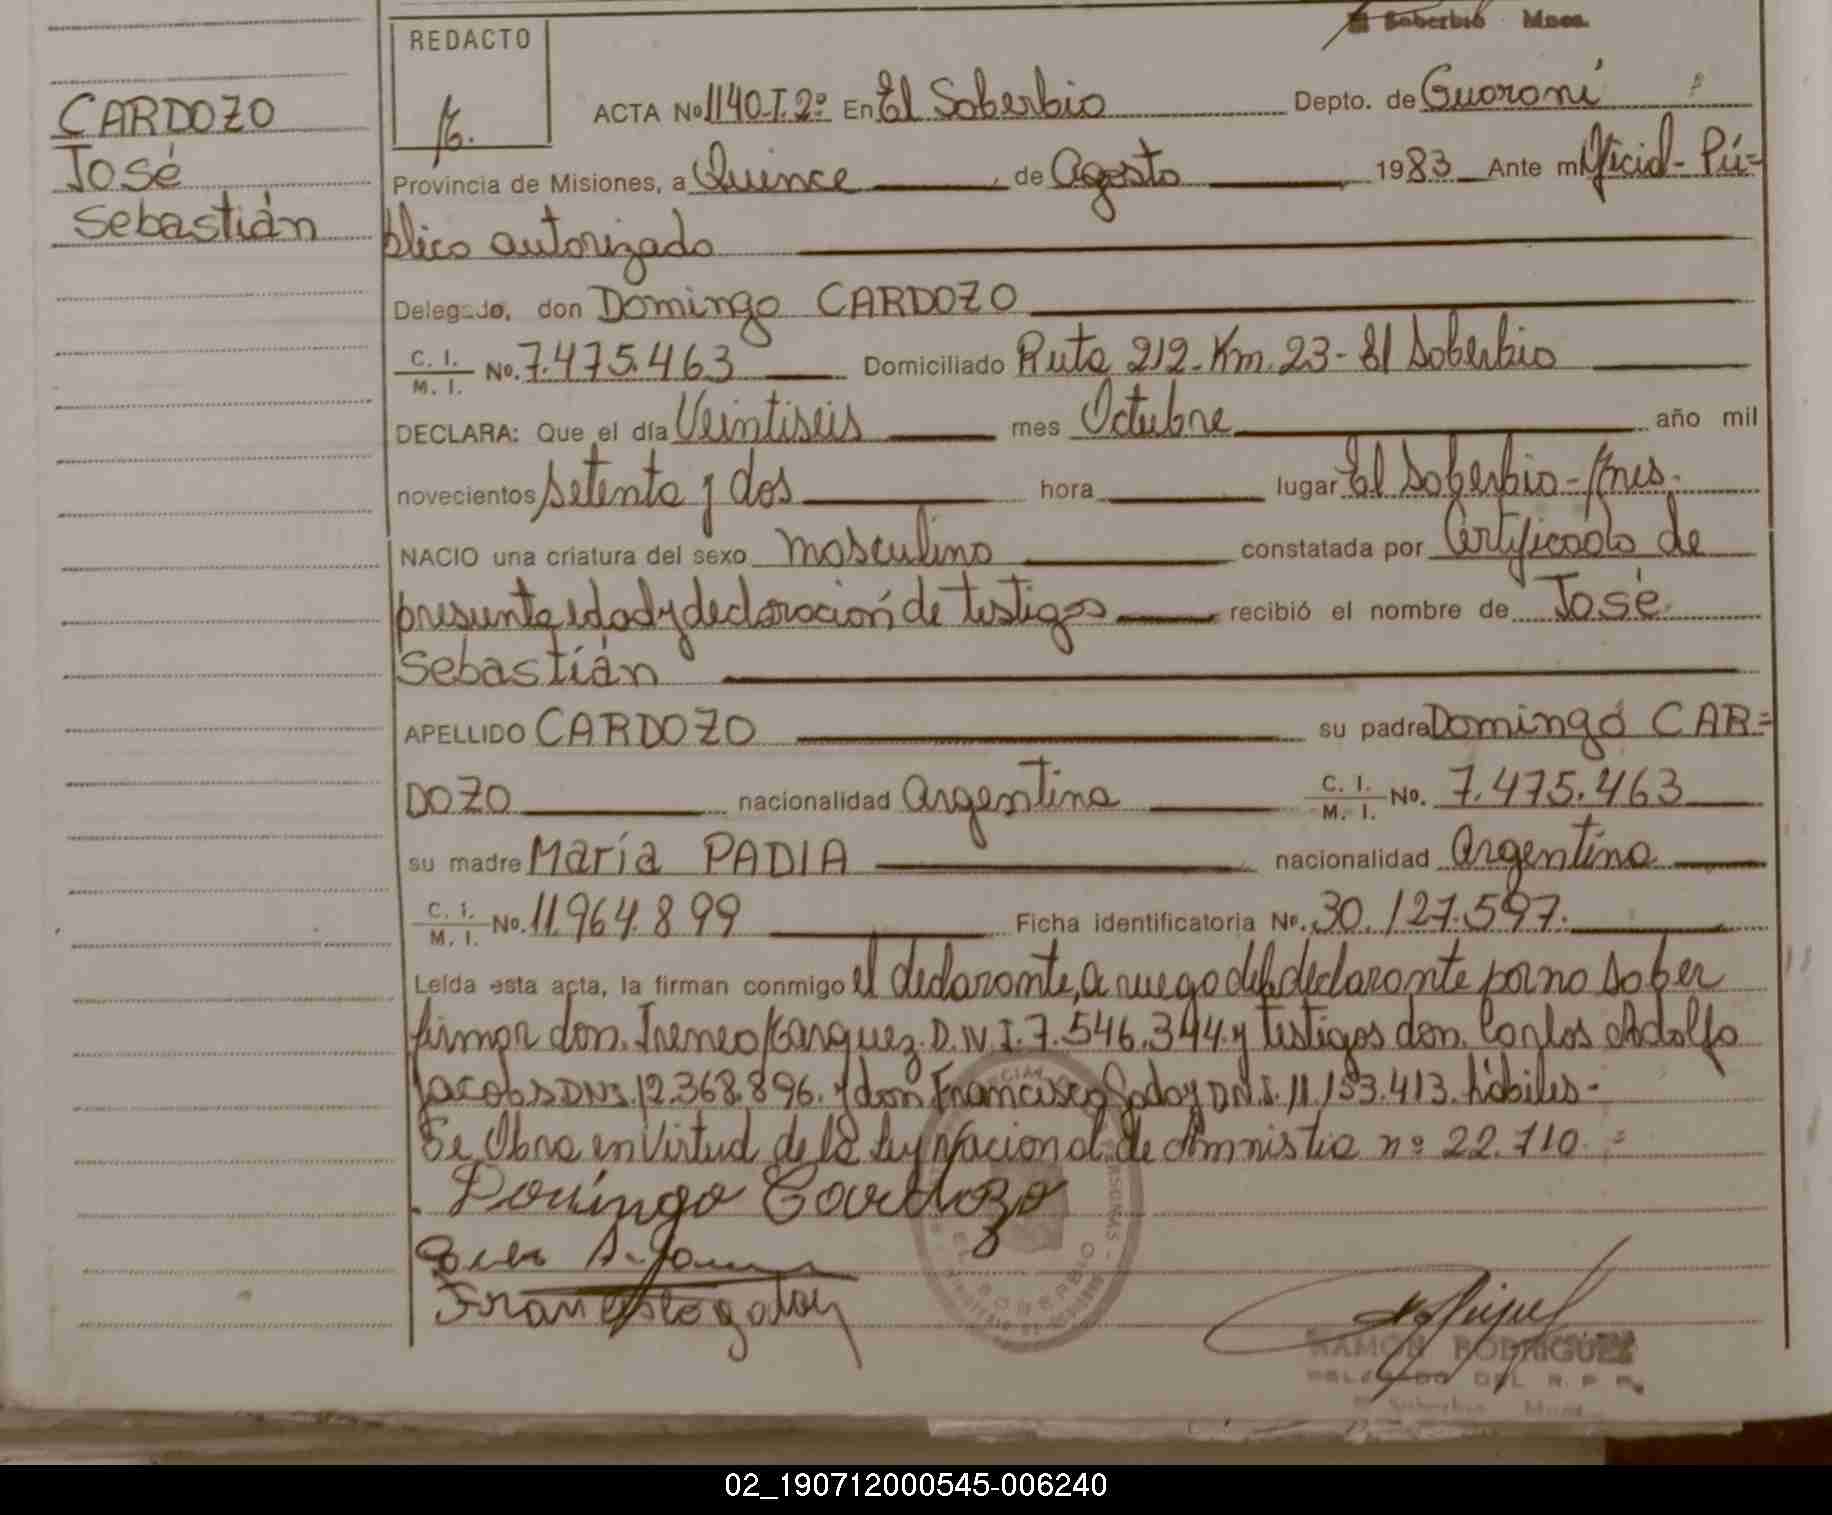 El Soberbio Mnes.
REDACTO
CARDOZO
José
Sebastián
ACTA No 1140.T.2º En El Soberbio Depto. de Guaraní
Provincia de Misiones, a Quince de Agosto 1983 Ante mi Oficial-Pú=
blico autorizado
Delegado, don Domingo CARDOZO
C. I. M. I. No. 7.475.463 Domiciliado Ruta 212-Km.23-El Soberbio
DECLARA: Que el día Veintiseis mes Octubre año mil
novecientos setenta y dos hora lugar El Soberbio-Mnes.
NACIO una criatura del sexo masculino constatada por Certificado de
presunta edad y declaración de testigos recibió el nombre de José
Sebastián
APELLIDO CARDOZO su padre Domingo CAR=
DOZO nacionalidad Argentina C. I. M. I. No. 7.475.463
su madre María PADIA nacionalidad Argentina
C. I. M. I. No. 11.964.899 Ficha identificatoria No. 30.127.597.
Leída esta acta, la firman conmigo el declarante, a ruego del declarante por no saber
firmar don. Ireneo Marquez D.N.I. 7.546.344 y testigos don. Carlos Adolfo
Jacobs DNI. 12.368.896. y don Francisco Godoy DN.I. 11.153.413. hábiles-
Se Obra en Virtud de la Ley Nacional de Amnistia nº 22.710.=
Domingo Cardozo
Francisco godoy
EL SOBERBIO
RAMON RODRIGUEZ
DELEGADO DEL R. P. P.
El Soberbio Mnes.
02_190712000545-006240